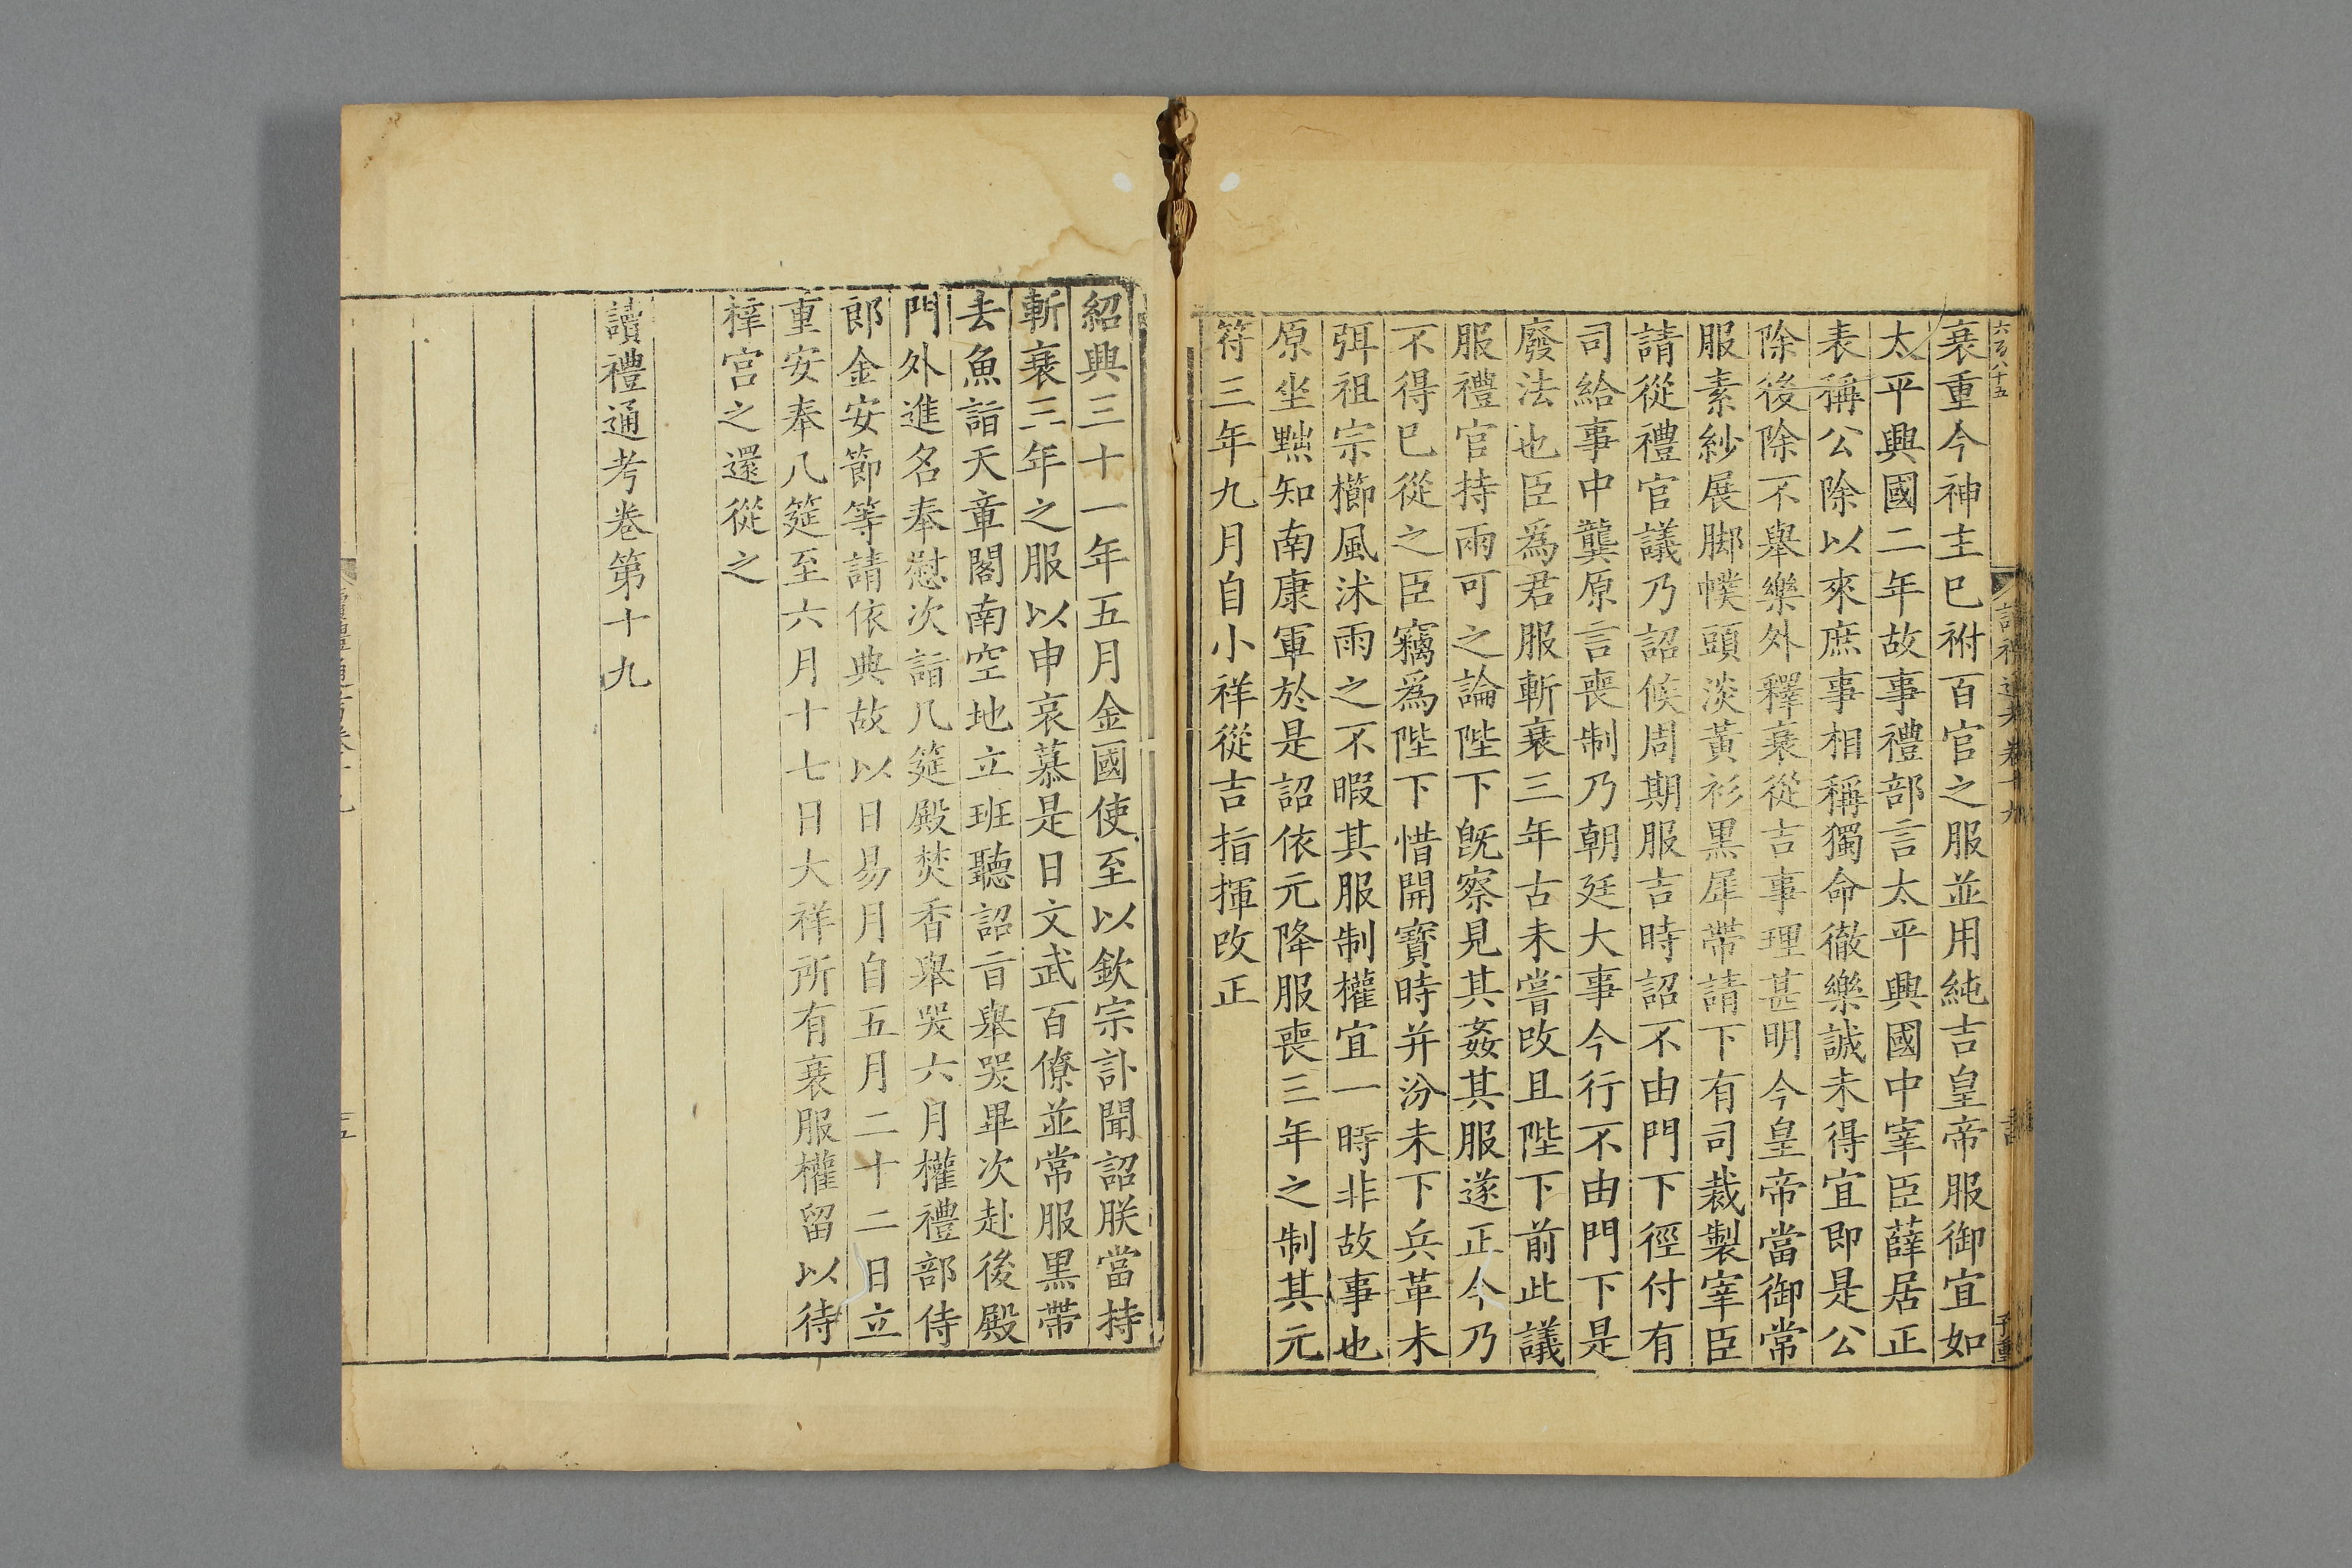 衰重今神主巳祔百官之服並用純吉皇帝服御宜如
太平興國二年故事禮部言太平興國中宰臣薛居正
表稱公除以來庶事相稱獨命徹樂誠未得宜即是公
除後除不舉樂外釋衰從吉事理甚明今皇帝當御常
服素紗展脚幞頭淡黃衫黑犀帶請下有司裁製宰臣
請從禮官議乃詔候周期服吉時詔不由門下徑付有
司給事中龔原言喪制乃朝廷大事今行不由門下是
廢法也臣爲君服斬衰三年古未嘗改且陛下前此議
服禮官持兩可之論陛下旣察見其姦其服遂正今乃
不得巳從之臣竊爲陛下惜開寶時并汾未下兵革未
弭祖宗櫛風沐雨之不暇其服制權宜一時非故事也
原坐黜知南康軍於是詔依元降服喪三年之制其元
符三年九月自小祥從吉指揮改正
紹興三十一年五月金國使至以欽宗訃聞詔朕當持
斬衰三年之服以申哀慕是日文武百僚並常服黑帶
去魚詣天章閣南空地立班聽詔旨舉哭畢次赴後殿
門外進名奉慰次詣几筵殿焚香舉哭六月權禮部侍
郎金安節等請依典故以日易月自五月二十二日立
重安奉几筵至六月十七日大祥所有衰服權留以待
梓宮之還從之
讀禮通考卷第十九